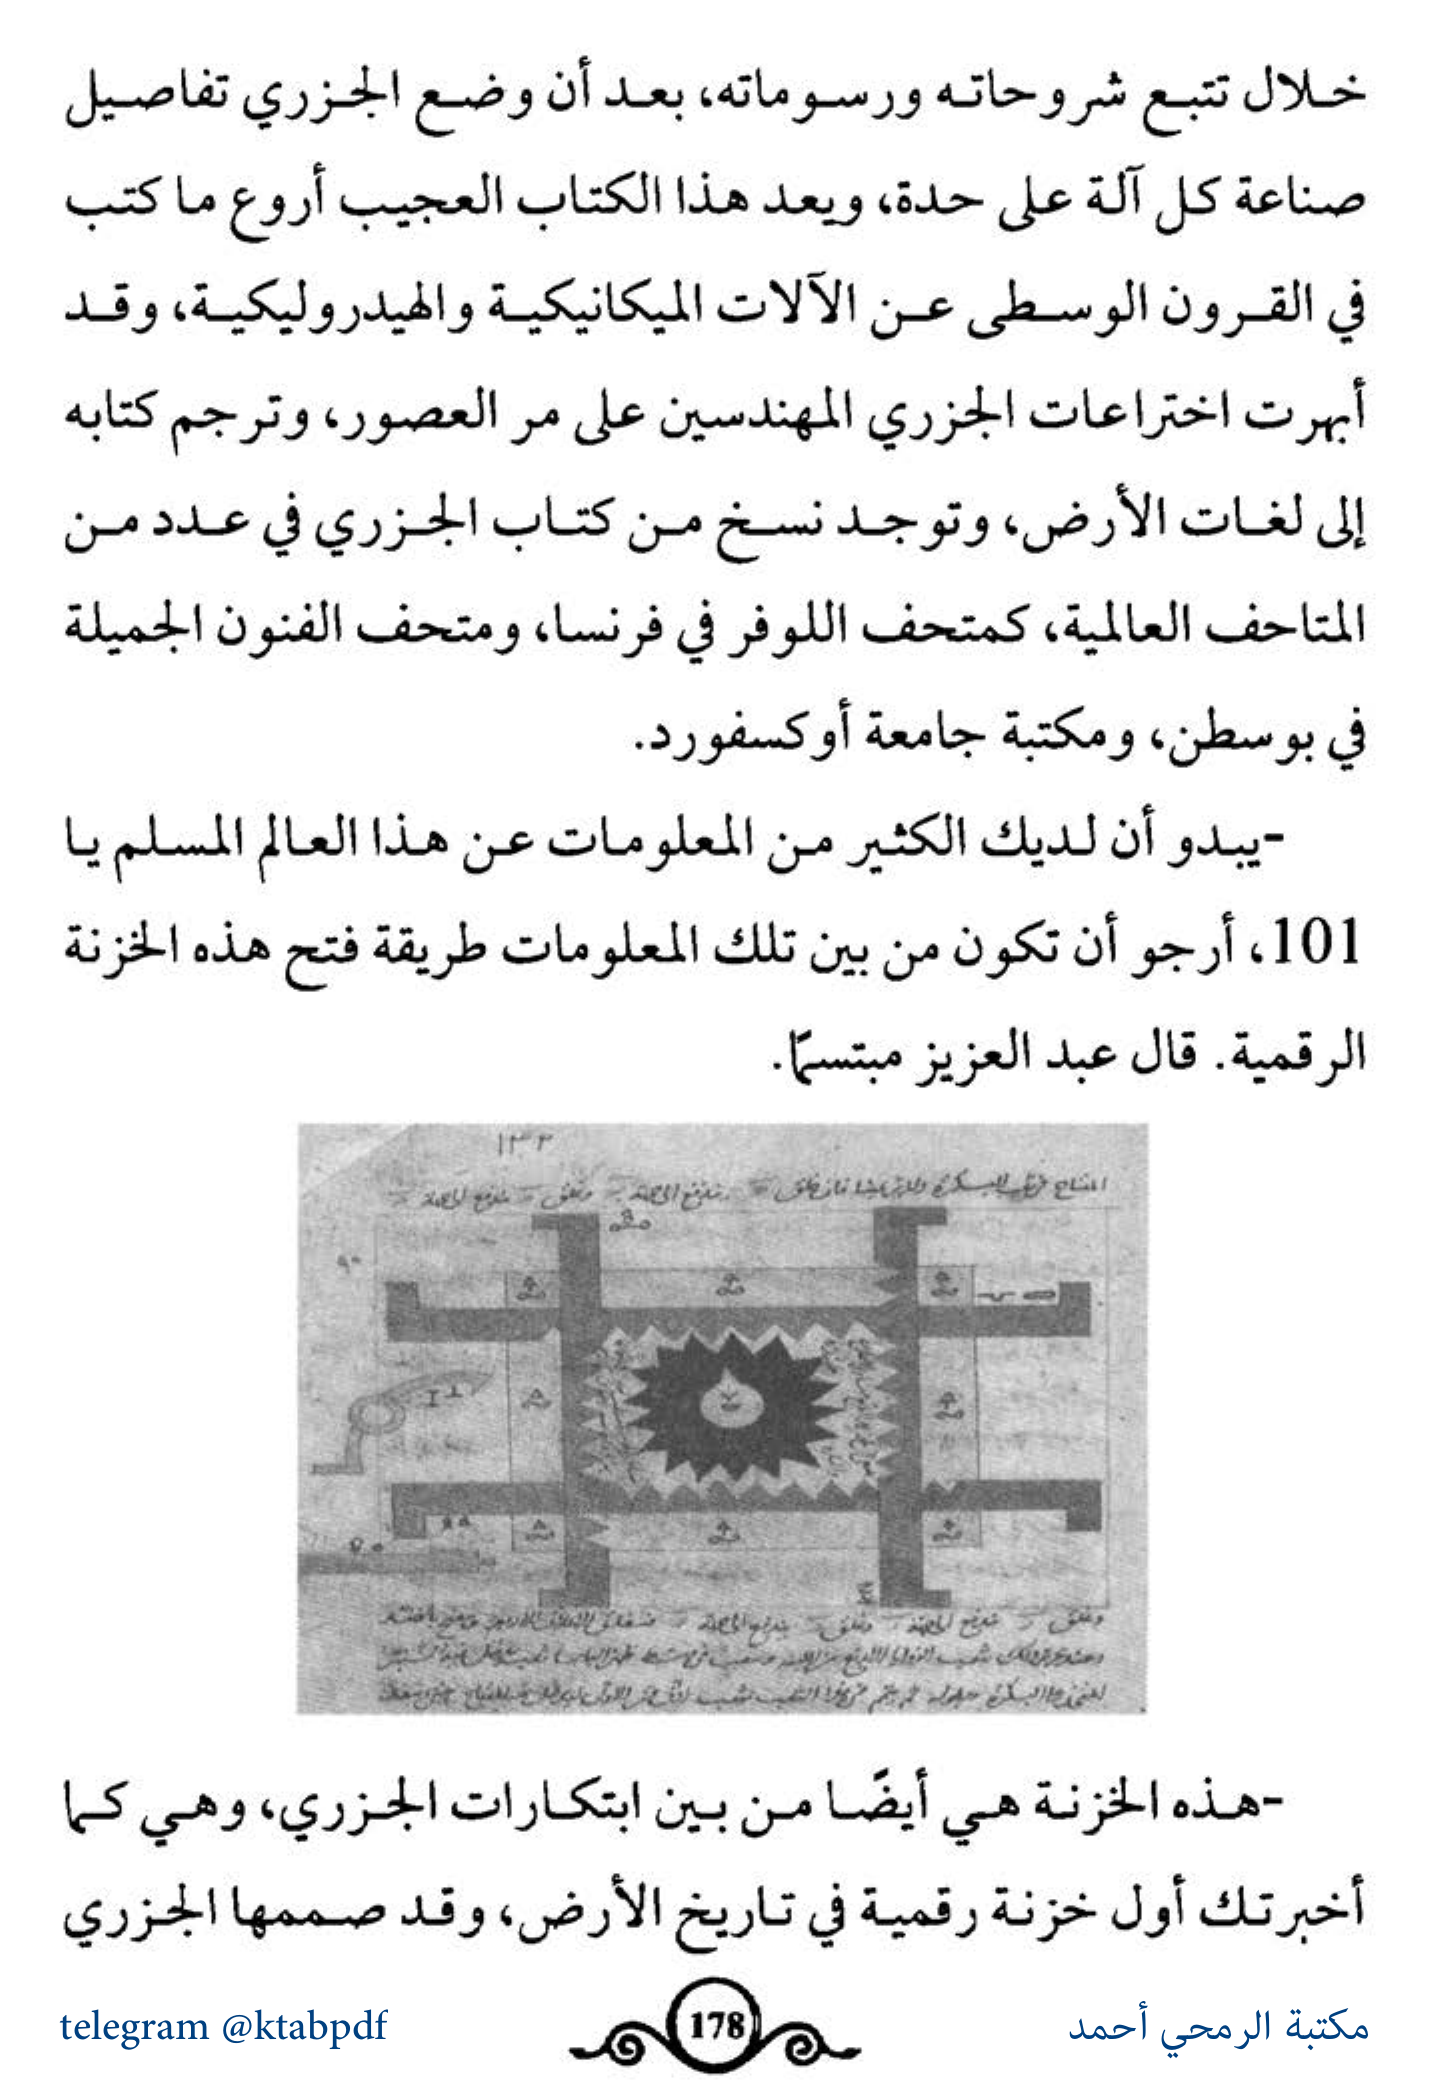 خلال تتبع شروحاته ورسوماته، بعد أن وضع الجزري تفاصيل
صناعة كل آلة على حدة، ويعد هذا الكتاب العجيب أروع ما كتب
في القرون الوسطى عن الآلات الميكانيكية والهيدروليكية، وقد
أبهرت اختراعات الجزري المهندسين على مر العصور، وترجم كتابه
إلى لغات الأرض، وتوجد نسخ من كتاب الجزري في عدد من
المتاحف العالمية، كمتحف اللوفر في فرنسا، ومتحف الفنون الجميلة
في بوسطن، ومكتبة جامعة أوكسفورد.
-يبدو أن لديك الكثير من المعلومات عن هذا العالم المسلم يا
101، أرجو أن تكون من بين تلك المعلومات طريقة فتح هذه الخزنة
الرقمية. قال عبد العزيز مبتسمًا.
١٣٢
-هذه الخزنة هي أيضًا من بين ابتكارات الجزري، وهي كما
أخبرتك أول خزنة رقمية في تاريخ الأرض، وقد صممها الجزري
178
مكتبة الرمحي أحمد
telegram @ktabpdf